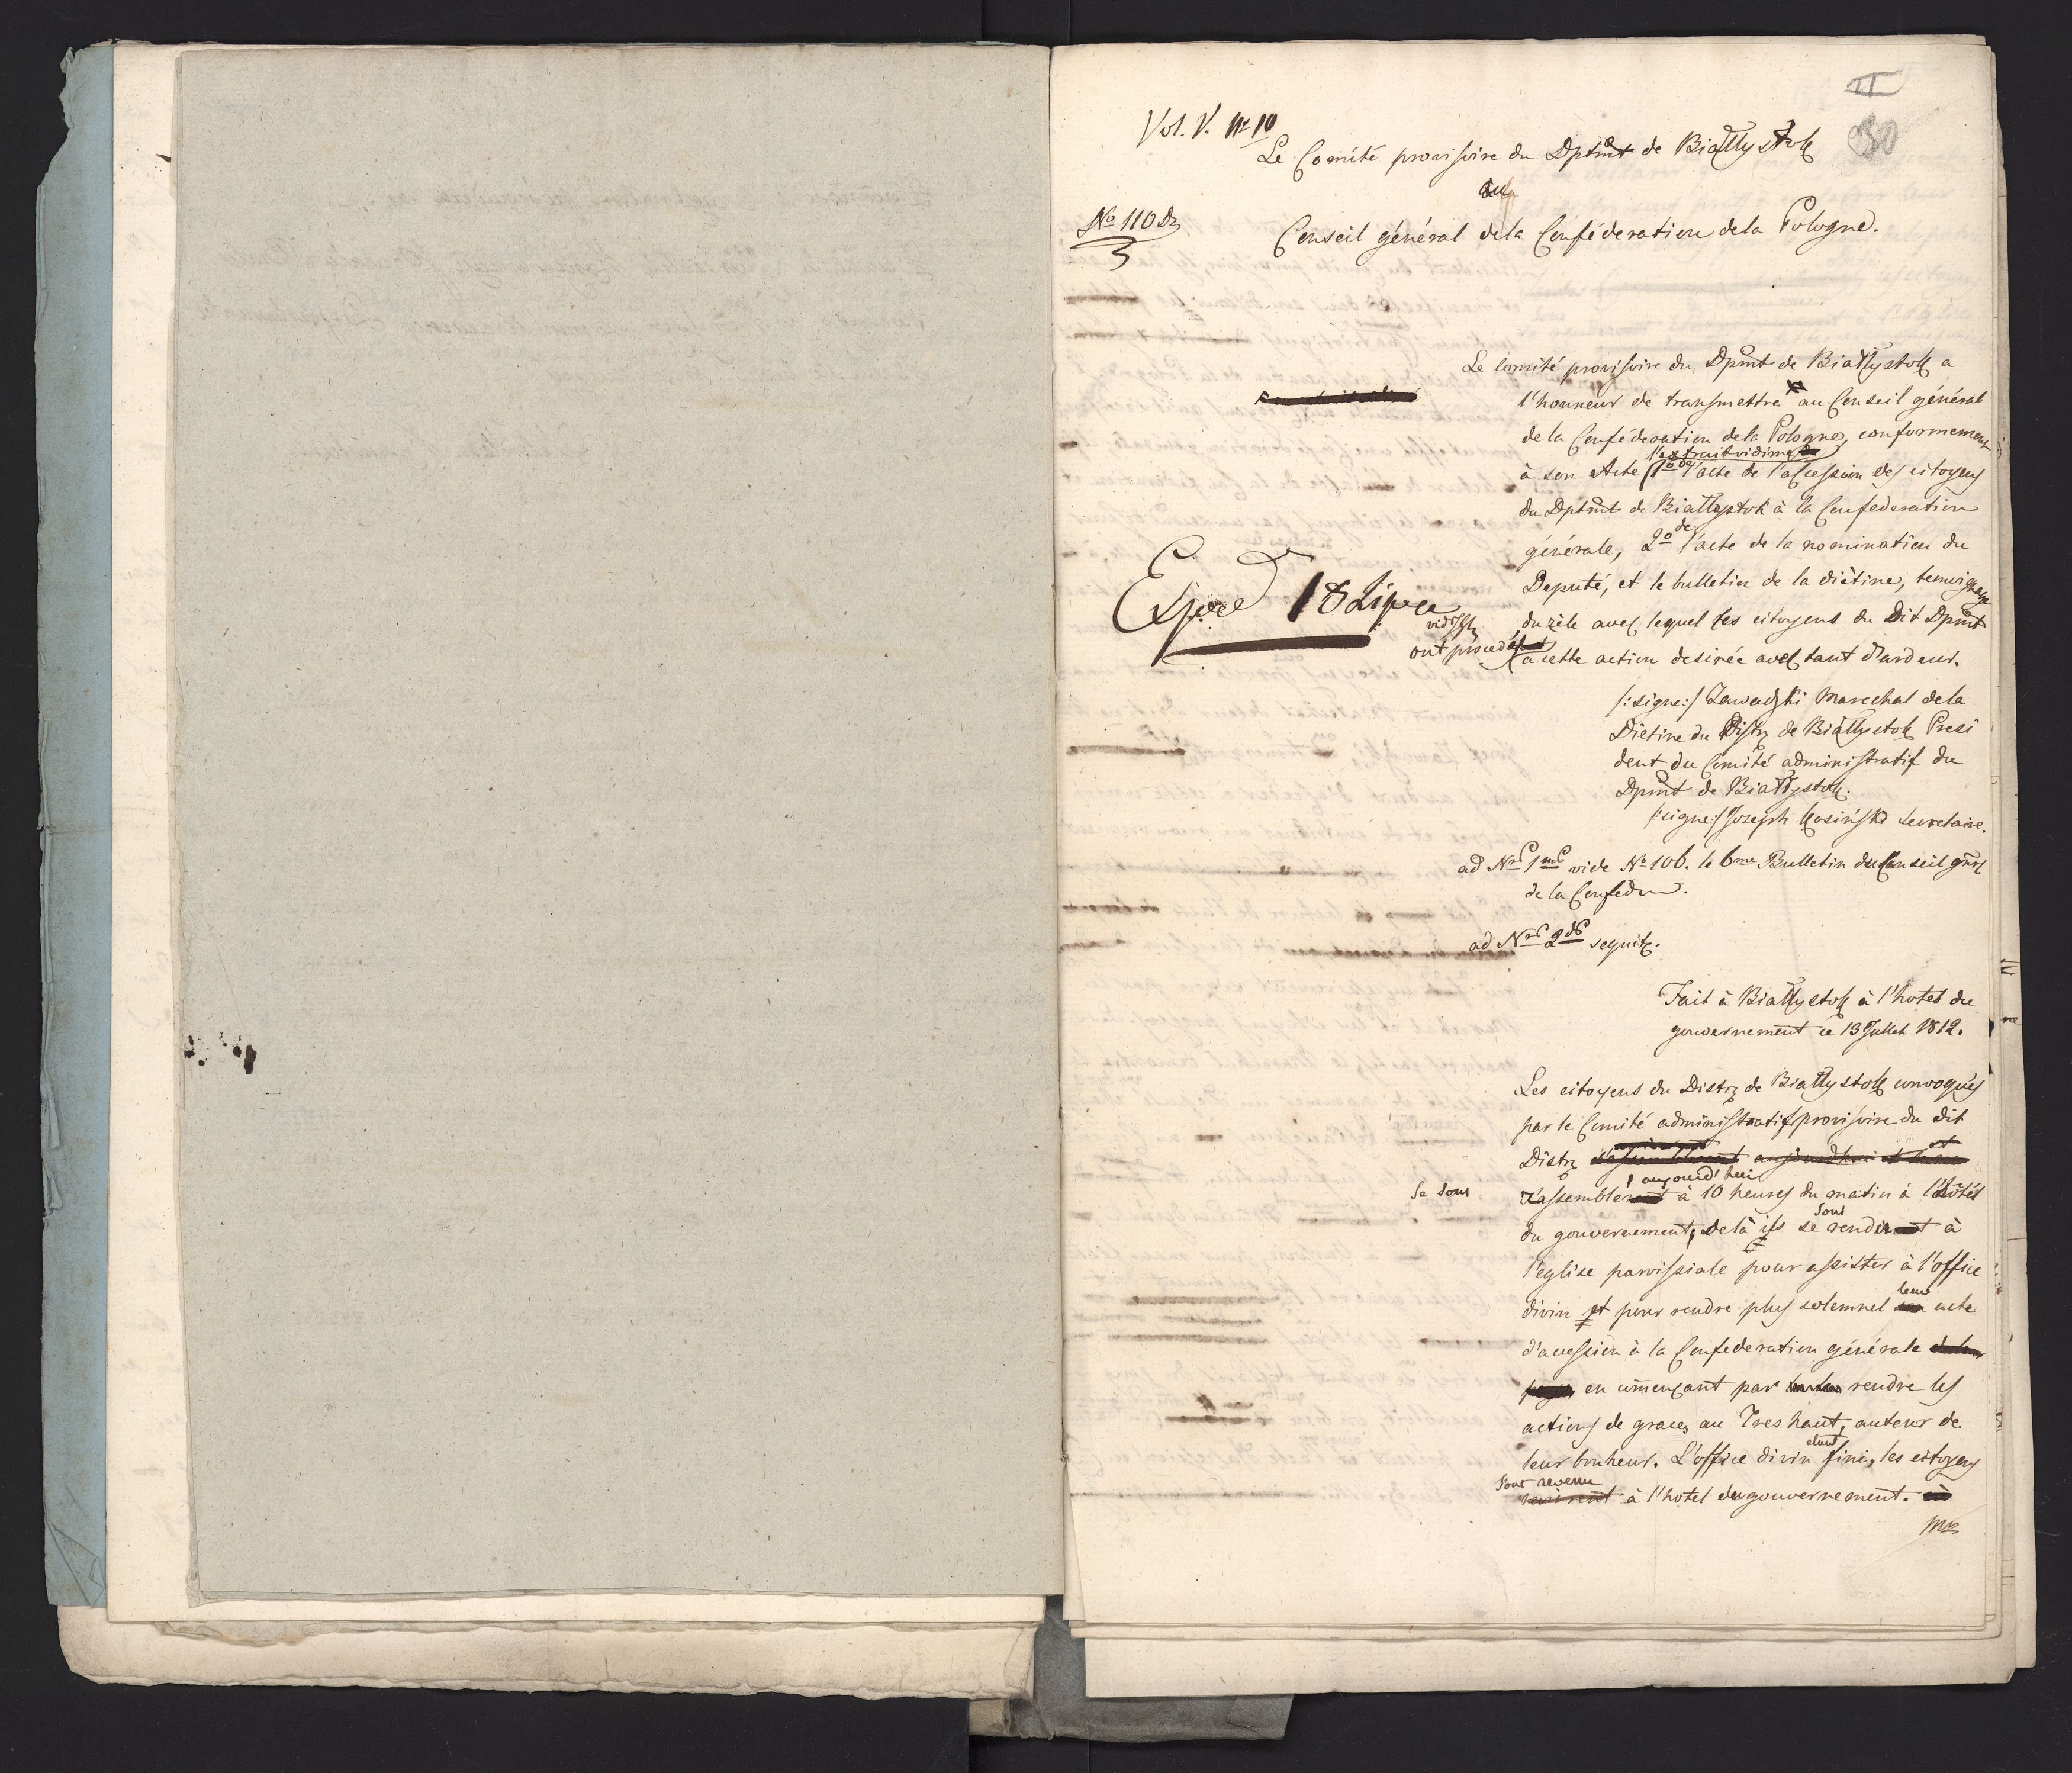 Vol. V. Nr 10
30
Le Comité provisoire du Dptmt de Białłystok
au
No 110 Dz
Conseil général dela Conféderation dela Pologne.
Le Comité provisoire du Dpmt de Białłystok a
l'honneur de transmettre au Conseil général
de la Conféderation dela Pologne, conformement
l'extrait vidimé
à son Acte 1o de l'acte de l'accession des citoyens
du Dptmt de Białłystok à la Confederation
générale, 2o de l'acte de la nomination du
Deputé, et le bulletin de la diètine, temoignage
Exped 18 Lipca
du zèle avec lequel les citoyens du Dit Dpmt
ont procedé à cette action desirée avec tant d'ardeur.
/:signe:/ Zawadzki Marechal dela
Diètine du Distr de Białłystok Presi
dent du Comité administratif du
Dpmt de Białłystok.
/:signe:/ Joseph Kosiński Secretaire.
ad Nrum 1mum vide No 106. le 6me Bulletin du Conseil gnrl
de la Confedon.
ad Nrum 2dum sequitr.
Fait à Białłystok à l'hotel du
gouvernement ce 13 Juillet 1812.
Les citoyens du Distr de Białłystok convoqués
par le Comité administratif provisoire du dit
Distr
aujourd'hui
se sont rassemblé à 10 heures du matin à l'hôtel
sont
du gouvernement, Delà ils se rendu à
l'eglise paroissiale pour assister à l'office
leur
divin et pour rendre plus solemnel acte
d'accession à la Confederation générale
en cōmençant par rendre les
actions de graces au Tres haut, auteur de
étant
leur bonheur. L'office divin fini, les citoyens
sont revenu
à l'hotel du gouvernement.